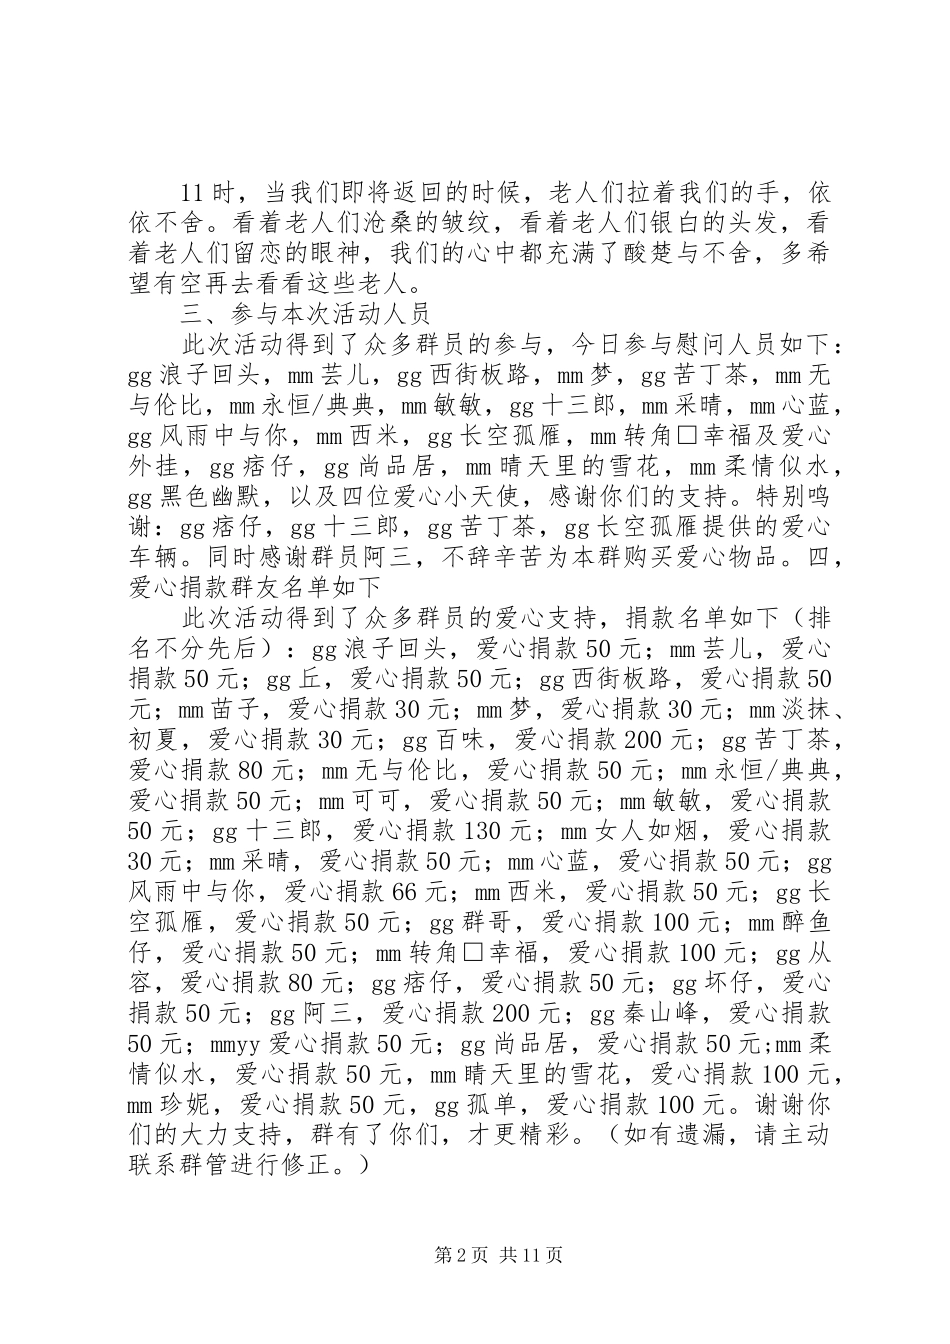 11 时，当我们即将返回的时候，老人们拉着我们的手，依
依不舍。看着老人们沧桑的皱纹，看着老人们银白的头发，看
着老人们留恋的眼神，我们的心中都充满了酸楚与不舍，多希
望有空再去看看这些老人。
三、参与本次活动人员
此次活动得到了众多群员的参与，今日参与慰问人员如下：
gg 浪子回头，mm 芸儿，gg 西街板路，mm 梦，gg 苦丁茶，mm 无
与伦比，mm 永恒/典典，mm 敏敏，gg 十三郎，mm 采晴，mm 心蓝，
gg 风雨中与你，mm 西米，gg 长空孤雁，mm 转角□幸福及爱心
外挂，gg 痞仔，gg 尚品居，mm 晴天里的雪花，mm 柔情似水，
gg 黑色幽默，以及四位爱心小天使，感谢你们的支持。特别鸣
谢：gg 痞仔，gg 十三郎，gg 苦丁茶，gg 长空孤雁提供的爱心
车辆。同时感谢群员阿三，不辞辛苦为本群购买爱心物品。四，
爱心捐款群友名单如下
此次活动得到了众多群员的爱心支持，捐款名单如下（排
名不分先后）：gg 浪子回头，爱心捐款 50 元；mm 芸儿，爱心
捐款 50 元；gg 丘，爱心捐款 50 元；gg 西街板路，爱心捐款 50
元；mm 苗子，爱心捐款 30 元；mm 梦，爱心捐款 30 元；mm 淡抹、
初夏，爱心捐款 30 元；gg 百味，爱心捐款 200 元；gg 苦丁茶，
爱心捐款 80 元；mm 无与伦比，爱心捐款 50 元；mm 永恒/典典，
爱心捐款 50 元；mm 可可，爱心捐款 50 元；mm 敏敏，爱心捐款
50 元；gg 十三郎，爱心捐款 130 元；mm 女人如烟，爱心捐款
30 元；mm 采晴，爱心捐款 50 元；mm 心蓝，爱心捐款 50 元；gg
风雨中与你，爱心捐款 66 元；mm 西米，爱心捐款 50 元；gg 长
空孤雁，爱心捐款 50 元；gg 群哥，爱心捐款 100 元；mm 醉鱼
仔，爱心捐款 50 元；mm 转角□幸福，爱心捐款 100 元；gg 从
容，爱心捐款 80 元；gg 痞仔，爱心捐款 50 元；gg 坏仔，爱心
捐款 50 元；gg 阿三，爱心捐款 200 元；gg 秦山峰，爱心捐款
50 元；mmyy 爱心捐款 50 元；gg 尚品居，爱心捐款 50 元;mm 柔
情似水，爱心捐款 50 元，mm 晴天里的雪花，爱心捐款 100 元，
mm 珍妮，爱心捐款 50 元，gg 孤单，爱心捐款 100 元。谢谢你
们的大力支持，群有了你们，才更精彩。（如有遗漏，请主动
联系群管进行修正。）
第 2 页 共 11 页